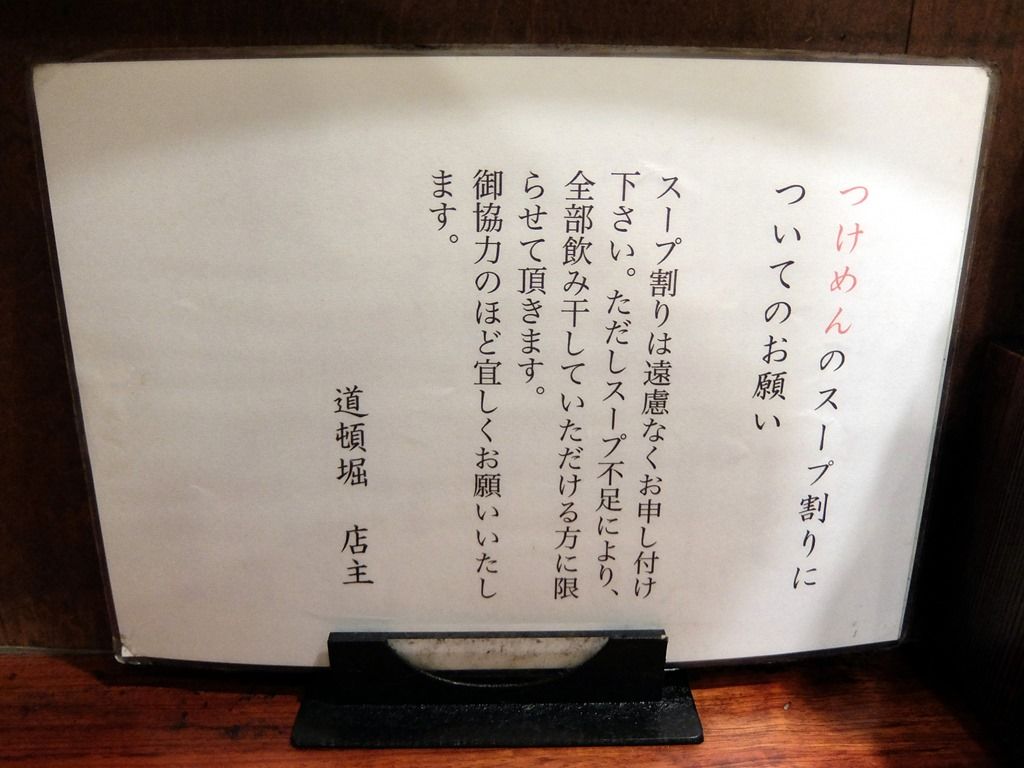 つけめんのスープ割りに
ついてのお願い
スープ割りは遠慮なくお申し付け
下さい。ただしスープ不足により、
全部飲み干していただける方に限
らせて頂きます。
御協力のほど宜しくお願いいたし
ます。
道頓堀 店主